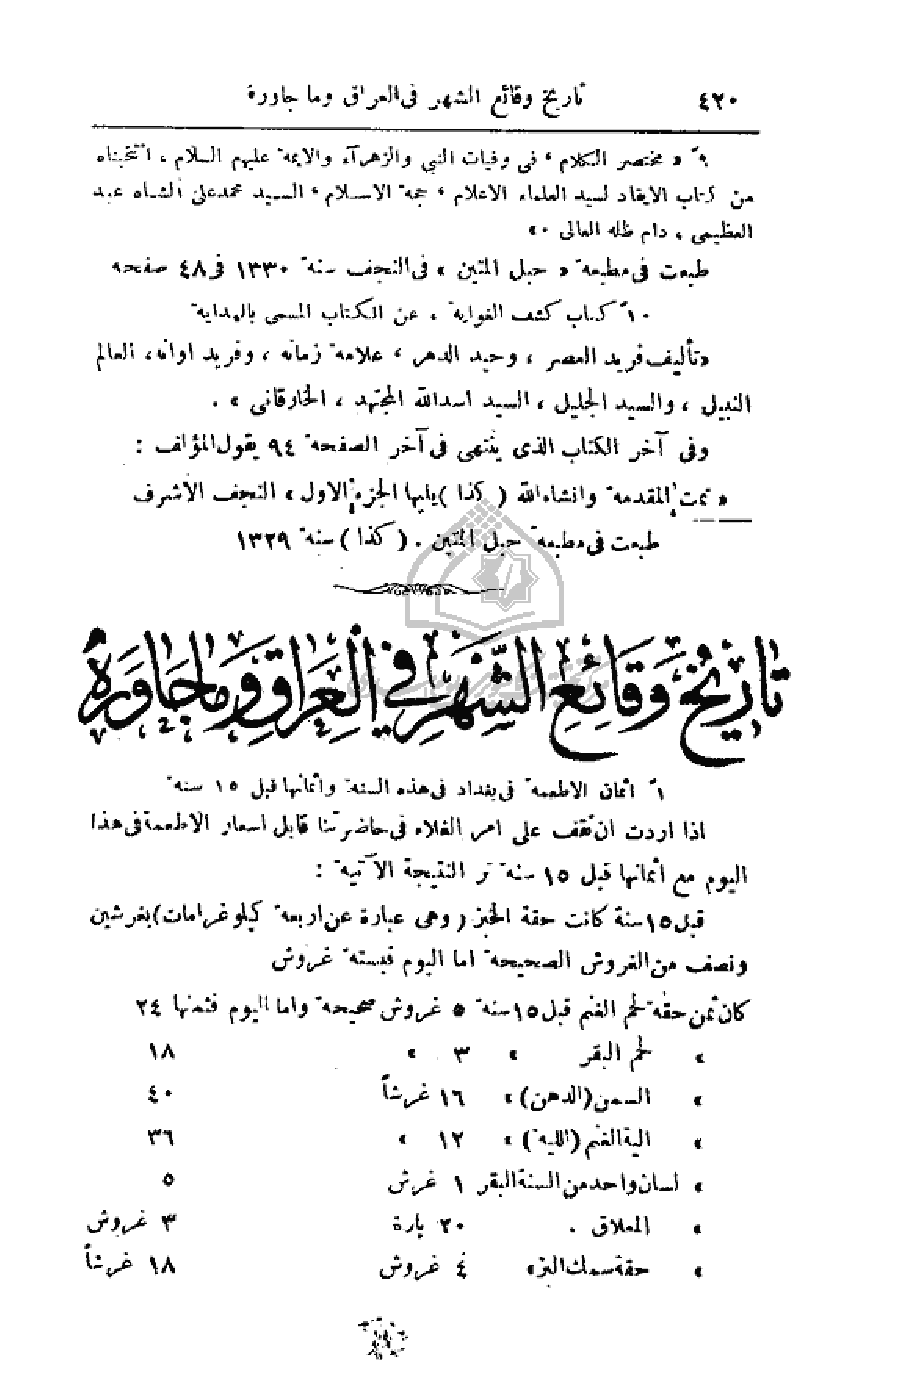 ٤٢٠ تاريخ وقائع الشهر في العراق وما جاوره
٩ً « مختصر الكلام ، في وفيات النبي والزهرآء والايمة عليهم السلام ، انتخبناه
من كتاب الايقاد لسيد العلماء الاعلام ، حجة الاسلام ، السيد محمد علي الشاه عبد
العظيمي ، دام ظله العالي . »
طبعت في مطبعة « حبل المتين » في النجف سنة ١٣٣٠ في ٤٨ صفحه
١٠ً كتاب كشف الغواية ، عن الكتاب المسمى بالهداية
« تأليف فريد العصر ، وحيد الدهر ، علامة زمانه ، وفريد اوانه ، العالم
النبيل ، والسيد الجليل ، السيد اسدالله المجتهد ، الخارقاني » .
وفي آخر الكتاب الذي ينتهي في آخر الصفحة ٩٤ يقول المؤلف :
« تمت المقدمة وانشاءالله ( كذا ) يليها الجزء الاول ، النجف الأشرف
طبعت في مطبعة حبل المتين . ( كذا ) سنة ١٣٢٩
تاريخ وقائع الشهر في العراق وما جاوره
١ً اثمان الاطعمة في بغداد في هذه السنة واثمانها قبل ١٥ سنة
اذا اردت ان تقف على امر الغلاء في حاضرتنا قابل اسعار الاطعمة في هذا
اليوم مع اثمانها قبل ١٥ سنة تر النتيجة الآتية :
قبل ١٥ سنة كانت حقة الخبز ( وهي عبارة عن اربعة كيلوغرامات ) بغرشين
ونصف من الغروش الصحيحة اما اليوم فبستة غروش
كان ثمن حقة لحم الغنم قبل ١٥ سنة ٥ غروش صحيحة واما اليوم فثمنها ٢٤
» لحم البقر » ٣ » ١٨
» السمن (الدهن) » ١٦ غرشاً ٤٠
» الية الغنم (اللية) » ١٢ » ٣٦
» لسان واحد من السنة البقر ١ غرش ٥
» المعلاق . ٢٠ بارة ٣ غروش
» حقة سمك البز » ٤ غروش ١٨ غرشاً